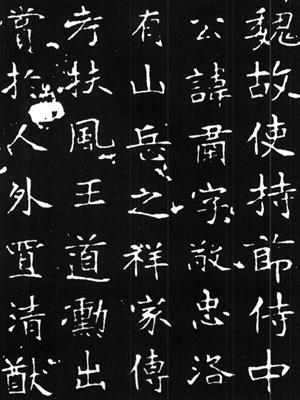 魏故使持節侍中
公諱肅字敬忠洛
有山岳之祥家傳
考扶風王道勳出
賞於人外置清猷